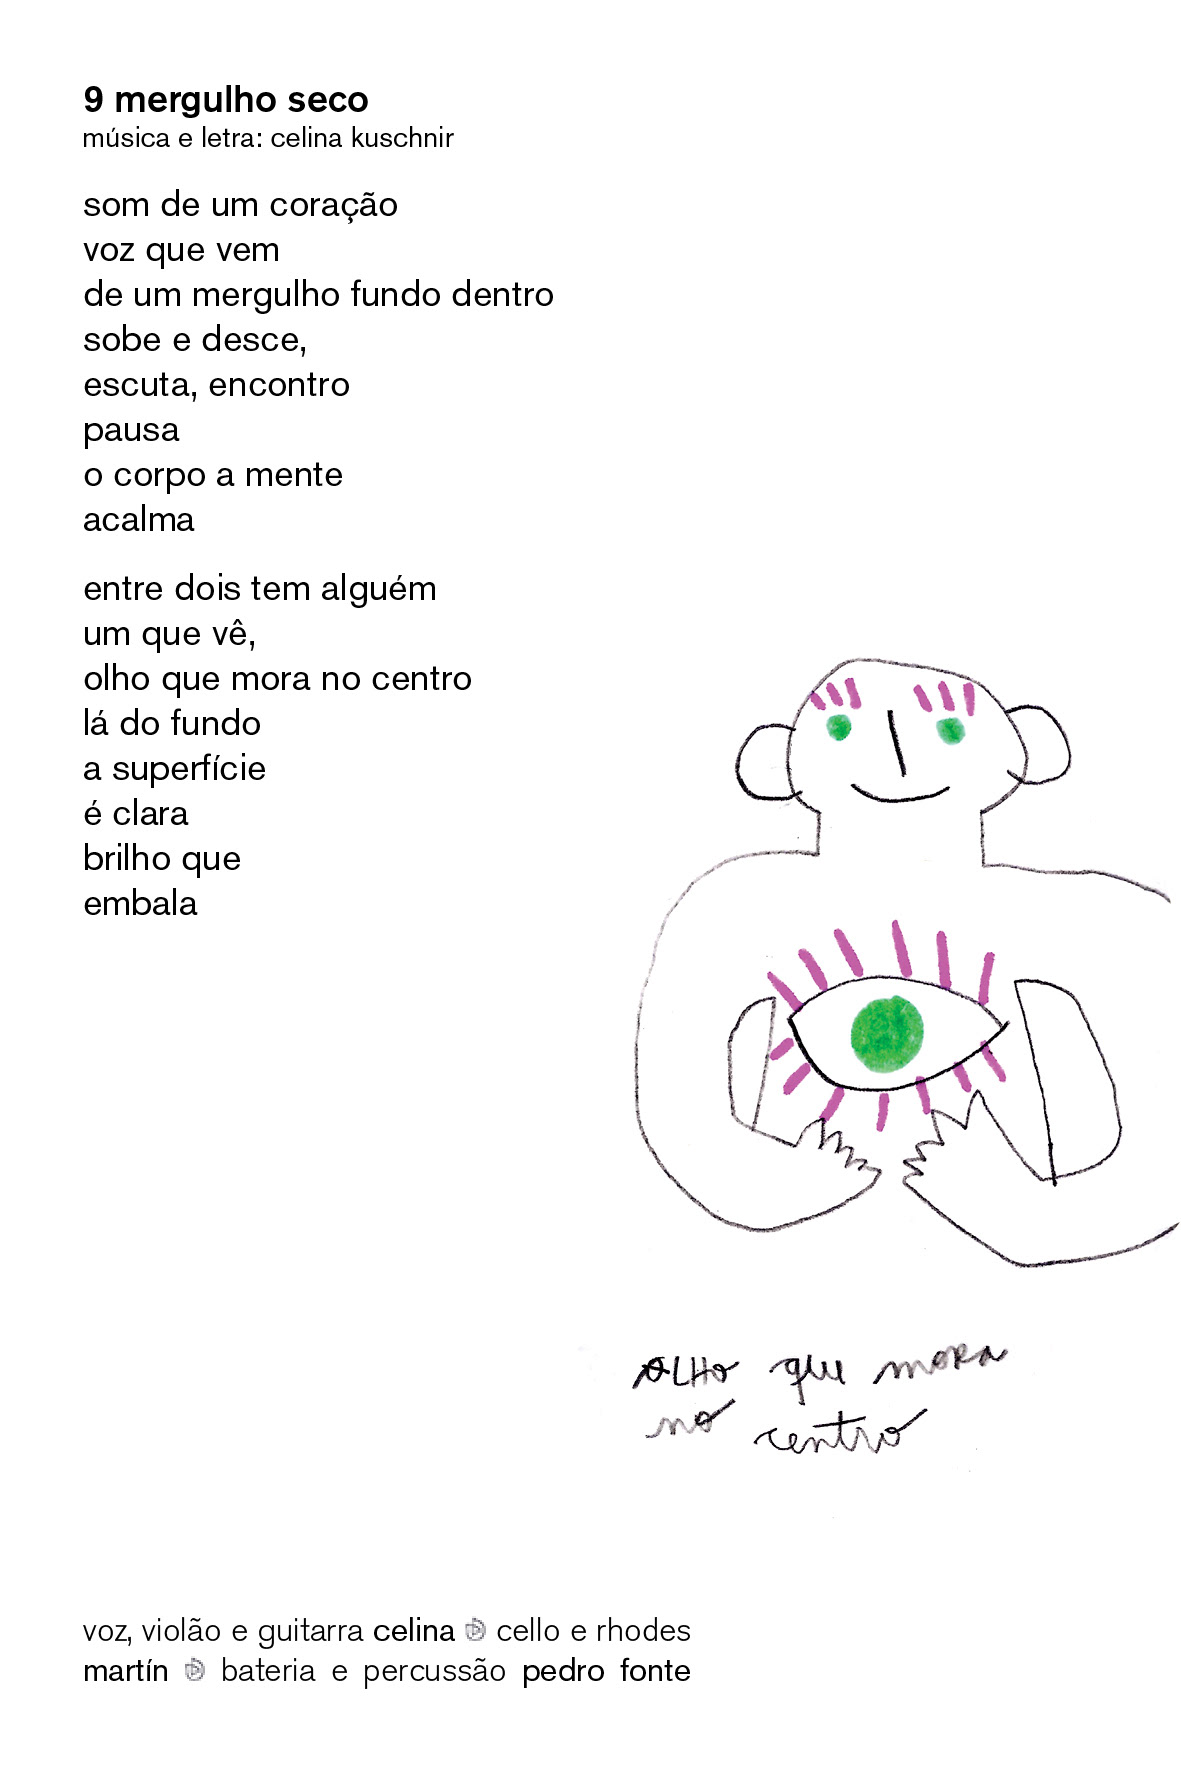 9 mergulho seco
música e letra: celina kuschnir
som de um coração
voz que vem
de um mergulho fundo dentro
sobe e desce,
escuta, encontro
pausa
o corpo a mente
acalma
entre dois tem alguém
um que vê,
olho que mora no centro
lá do fundo
a superfície
é clara
brilho que
embala
OLHO que mora
no centro
voz, violão e guitarra celina cello e rhodes
martín bateria e percussão pedro fonte